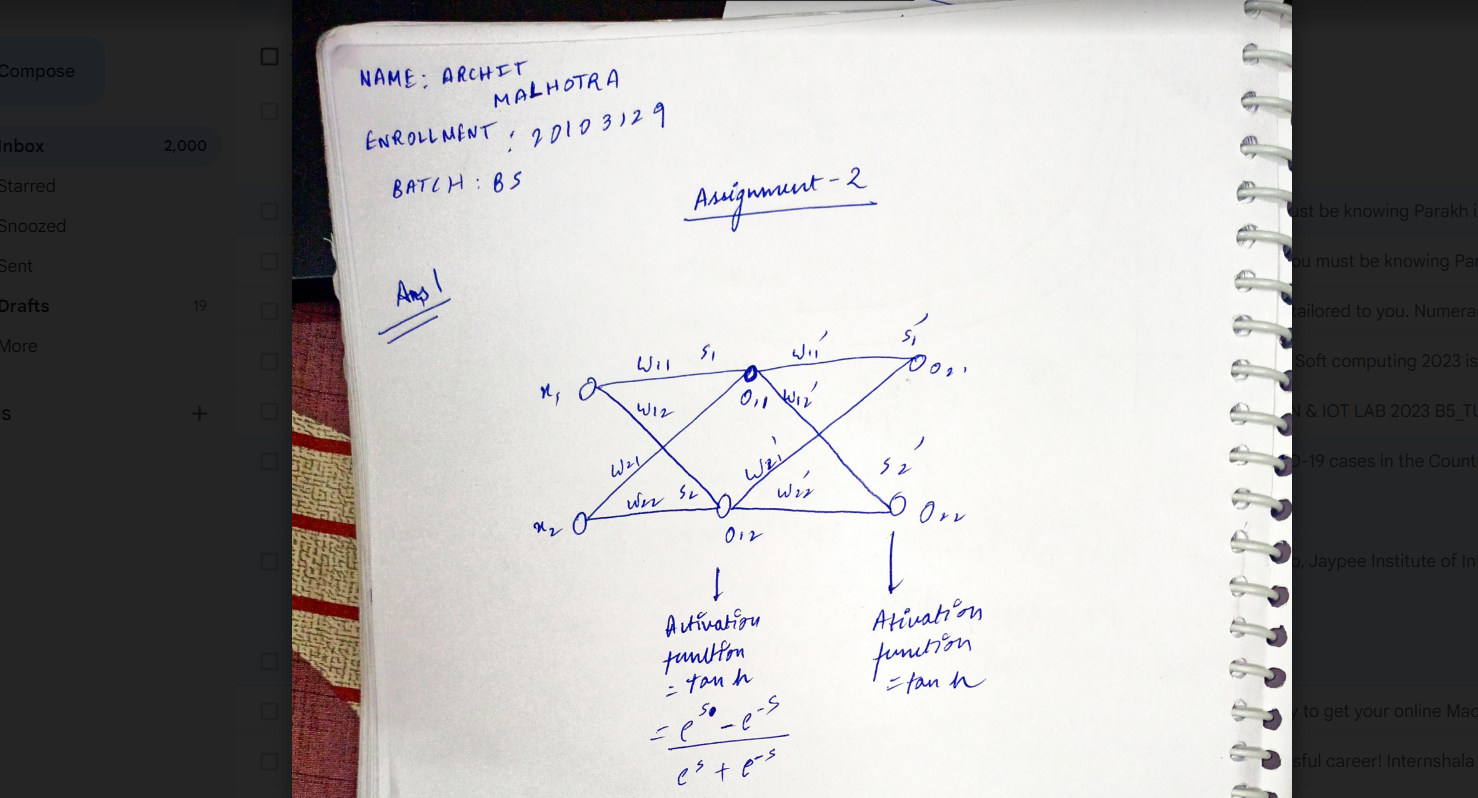 Compose
Inbox 2,000
Starred
Snoozed
Sent
Drafts 19
More
s +
NAME: ARCHIT
MALHOTRA
ENROLLMENT : 20103129
BATCH : B5
Assignment - 2
Ans 1
x₁ w₁₁ s₁ w₁₁' s₁' O₂₁
w₁₂ O₁₁ w₁₂'
w₂₁ w₂₁' s₂'
x₂ w₂₂ s₂ w₂₂' O₂₂
O₁₂
Activation
function
= tan h
= e^s - e^-s
e^s + e^-s
Ativation
function
= tan h
ust be knowing Parakh i
ou must be knowing Par
tailored to you. Numera
Soft computing 2023 is
N & IOT LAB 2023 B5_TU
D-19 cases in the Count
o, Jaypee Institute of In
y to get your online Mac
sful career! Internshala